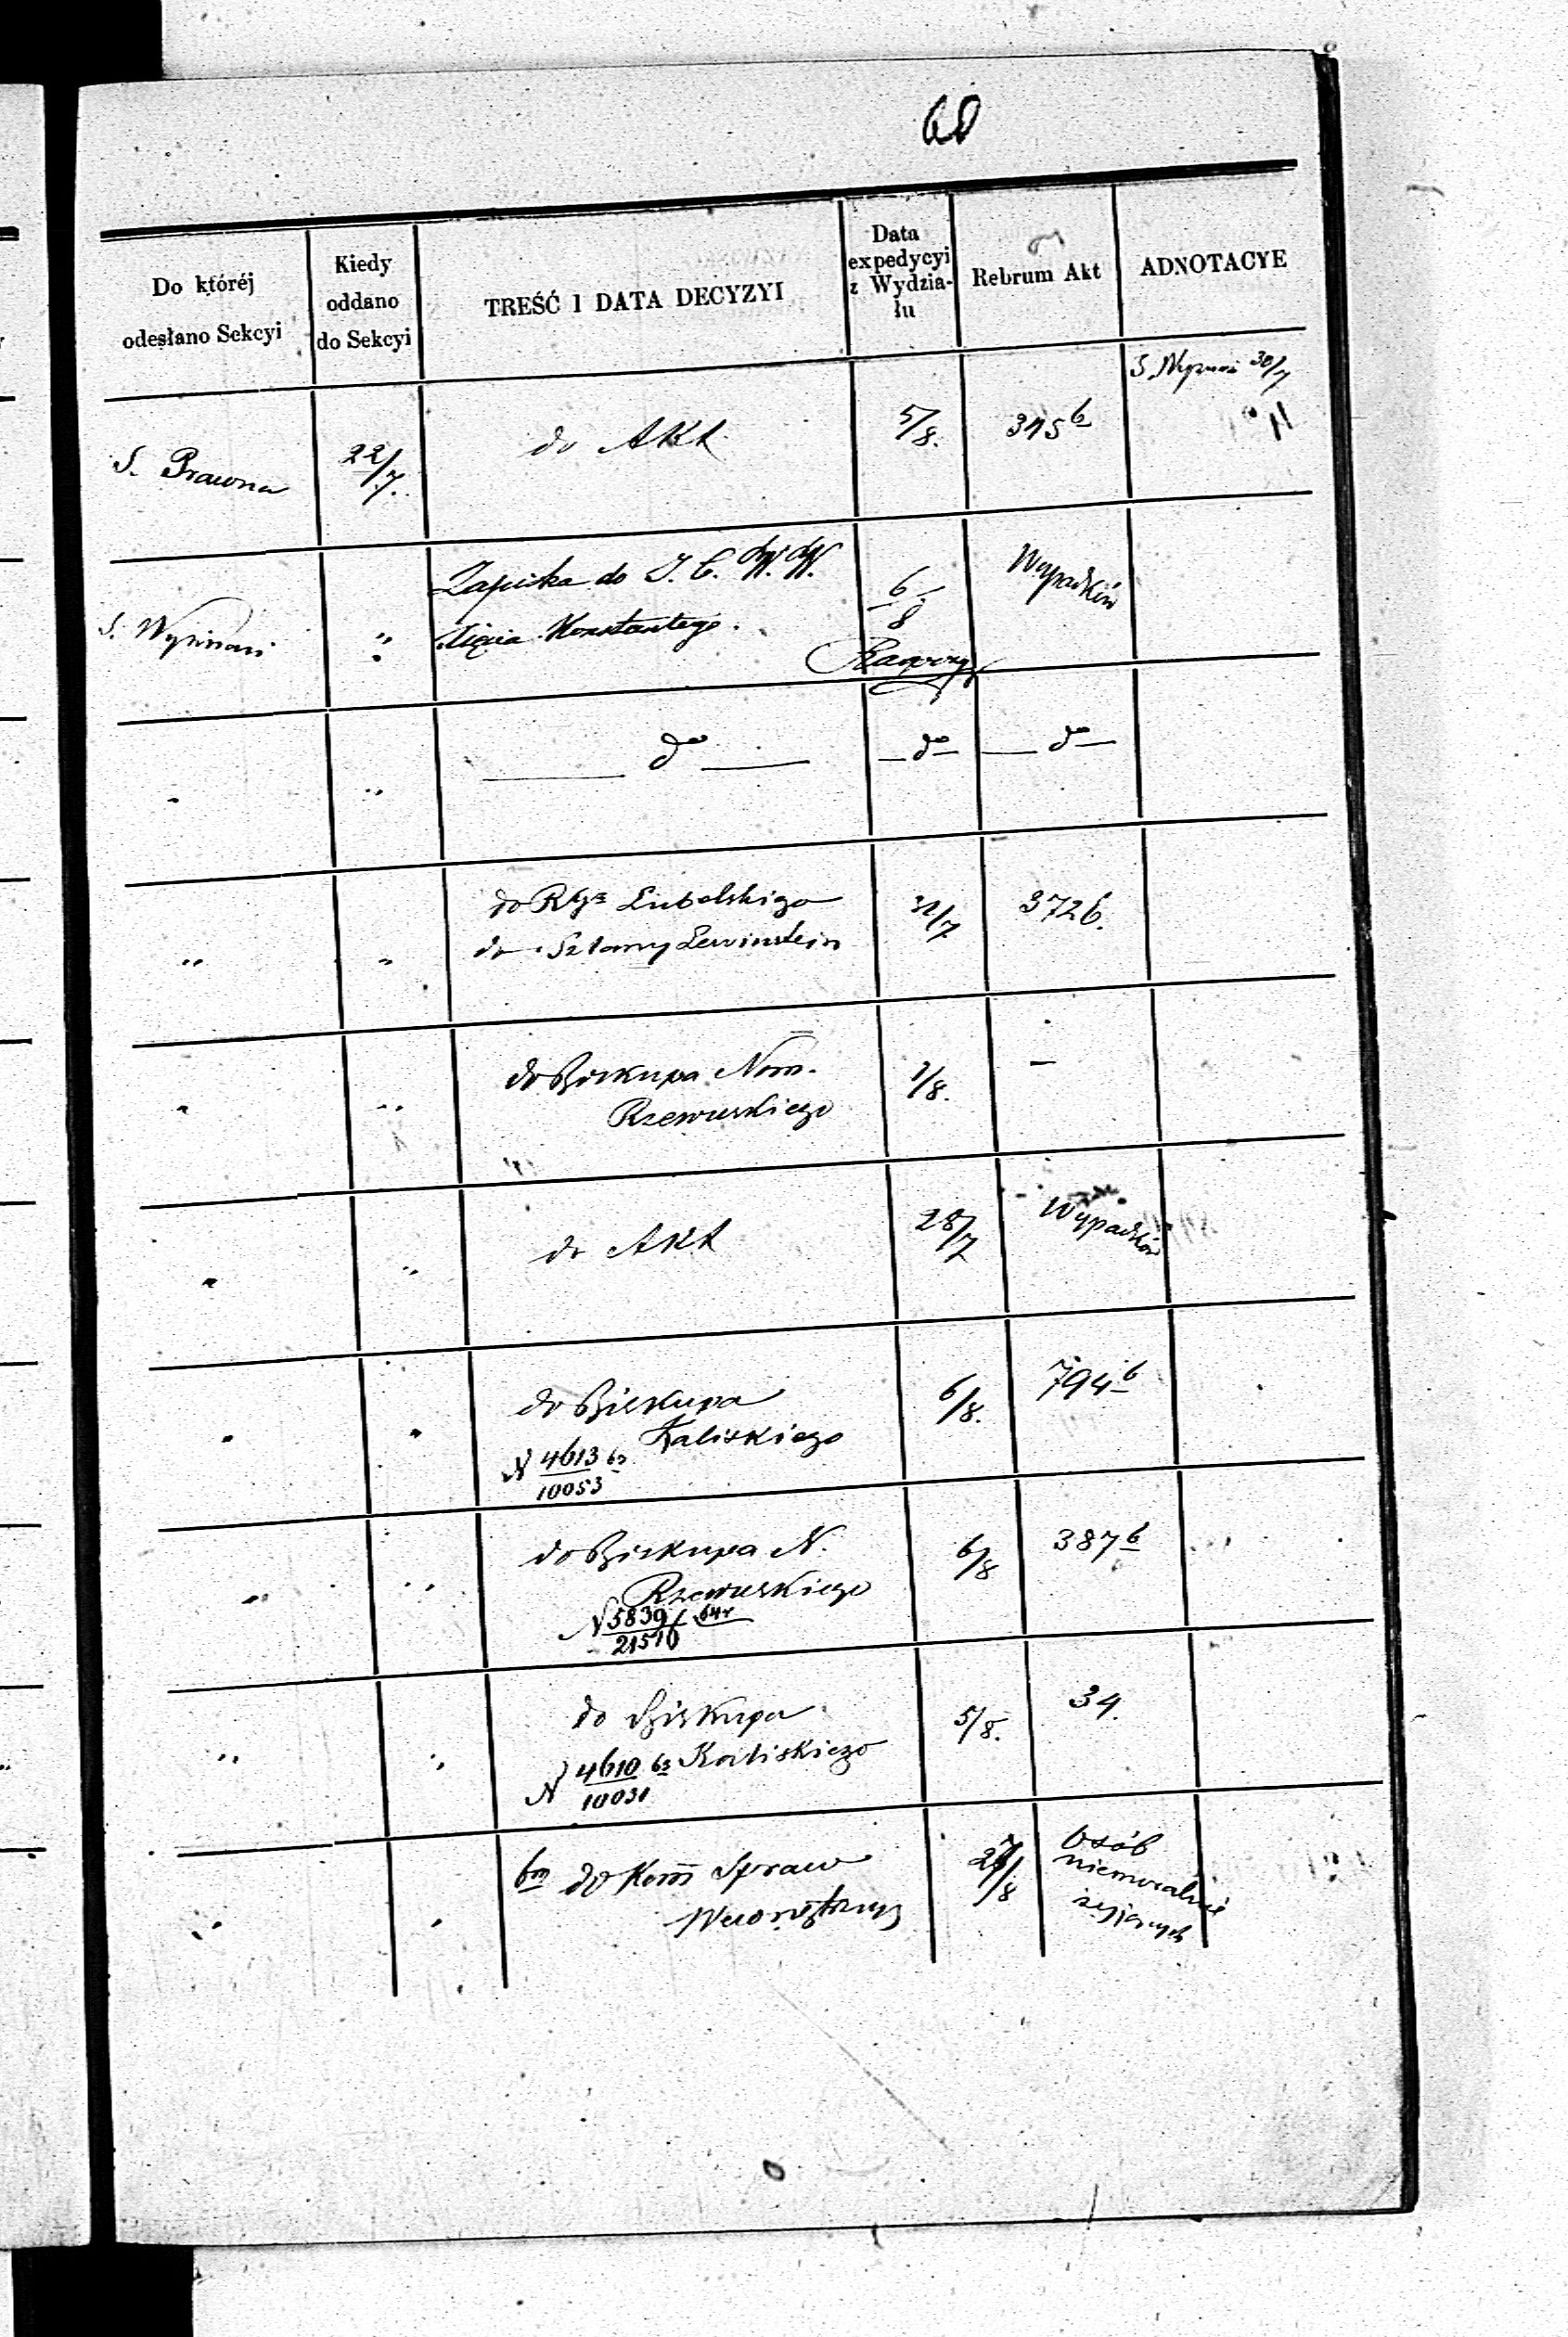 60
Do któréj odesłano Sekcyi
Kiedy oddano do Sekcyi
TREŚĆ I DATA DECYZYI
Data expedycyi z Wydzia-łu
Rebrum Akt
ADNOTACYE
S. Prawna 22/7. do Akt 5/8. 345 b S. 30/7
S. Wyznań " Zapiska do J. C. W. W. 6/8 Wypadków
Xięcia Konstantego.
" " do do do
" " do Rząd Lubelskiego 31/7 372 b.
do Szlamy Lewinstein
" " do Biskupa Nom. 1/8. —
Rzewuskiego
" " do Akt 28/7 Wypadków
" " do Biskupa 6/8. 794 b
Kaliskiego
N 4613/10053 63
" " do Biskupa N. 6/8 387 b
Rzewuskiego
N 5839/21570 64r
" " do Biskupa 5/8. 34.
N 4610/10031 63 Kaliskiego
" " do Kom Spraw 27/8 Osób
Wewnętrznych niemoralnie
żyjących